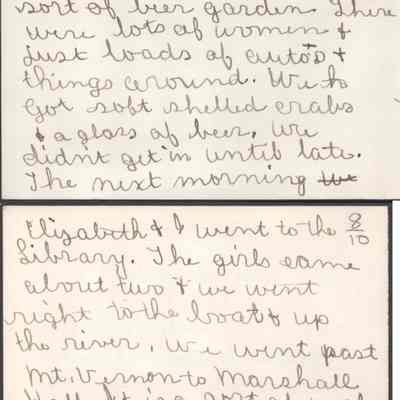 sort of beer garden. There
were lots of women &
just loads of autos &
things around. We
got soft shelled crabs
& a glass of beer. We
didnt get in until late.
The next morning
Elizabeth & I went to the 8/10
Library. The girls came
about two & we went
right to the boat & up
the river. We went past
Mt. Vernon to Marshall
Hall. It is a sort of